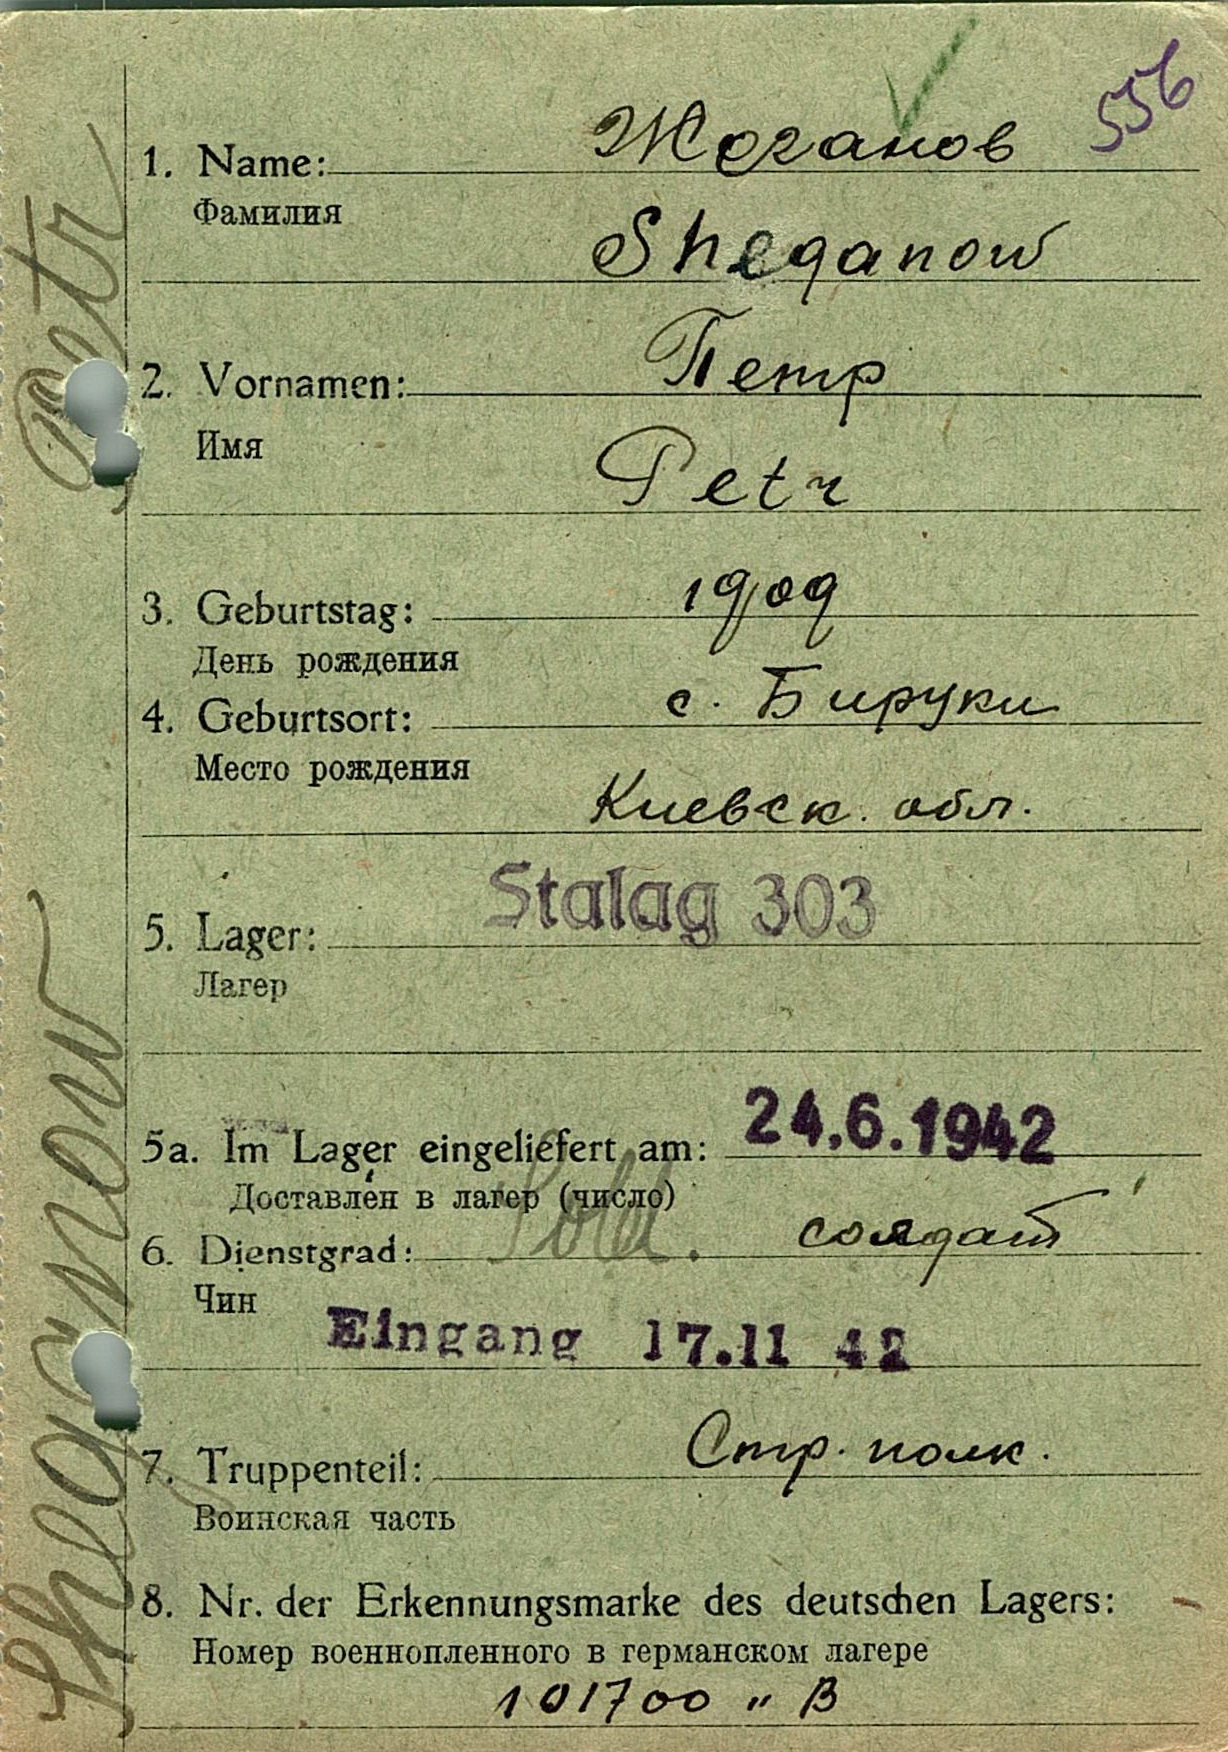 556
1. Name: Жоганов
Фамилия
Sheganow
2. Vornamen: Петр
Имя
Petr
3. Geburtstag: 1909
День рождения
4. Geburtsort: с. Бируки
Место рождения
Киевск. обл.
5. Lager: Stalag 303
Лагер
5a. Im Lager eingeliefert am: 24.6.1942
Доставлен в лагер (число)
6. Dienstgrad: Sold. солдат
Чин
Eingang 17.11 42
7. Truppenteil: Стр. полк.
Воинская часть
8. Nr. der Erkennungsmarke des deutschen Lagers:
Номер военнопленного в германском лагере
101700 „ B
Sheganow Petr